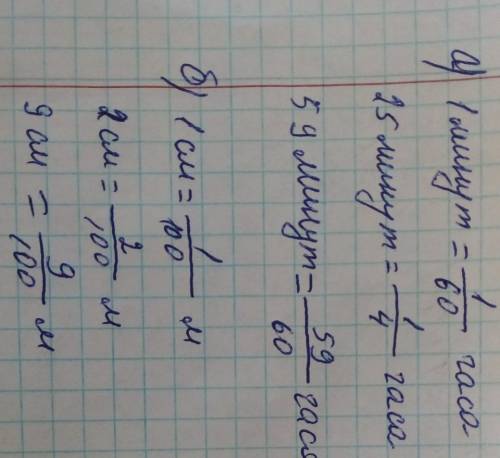 а) 1 минут = 1/60 часа
25 минут = 1/4 часа
59 минут = 59/60 часа
б) 1 см = 1/100 м
2 см = 2/100 м
9 см = 9/100 м